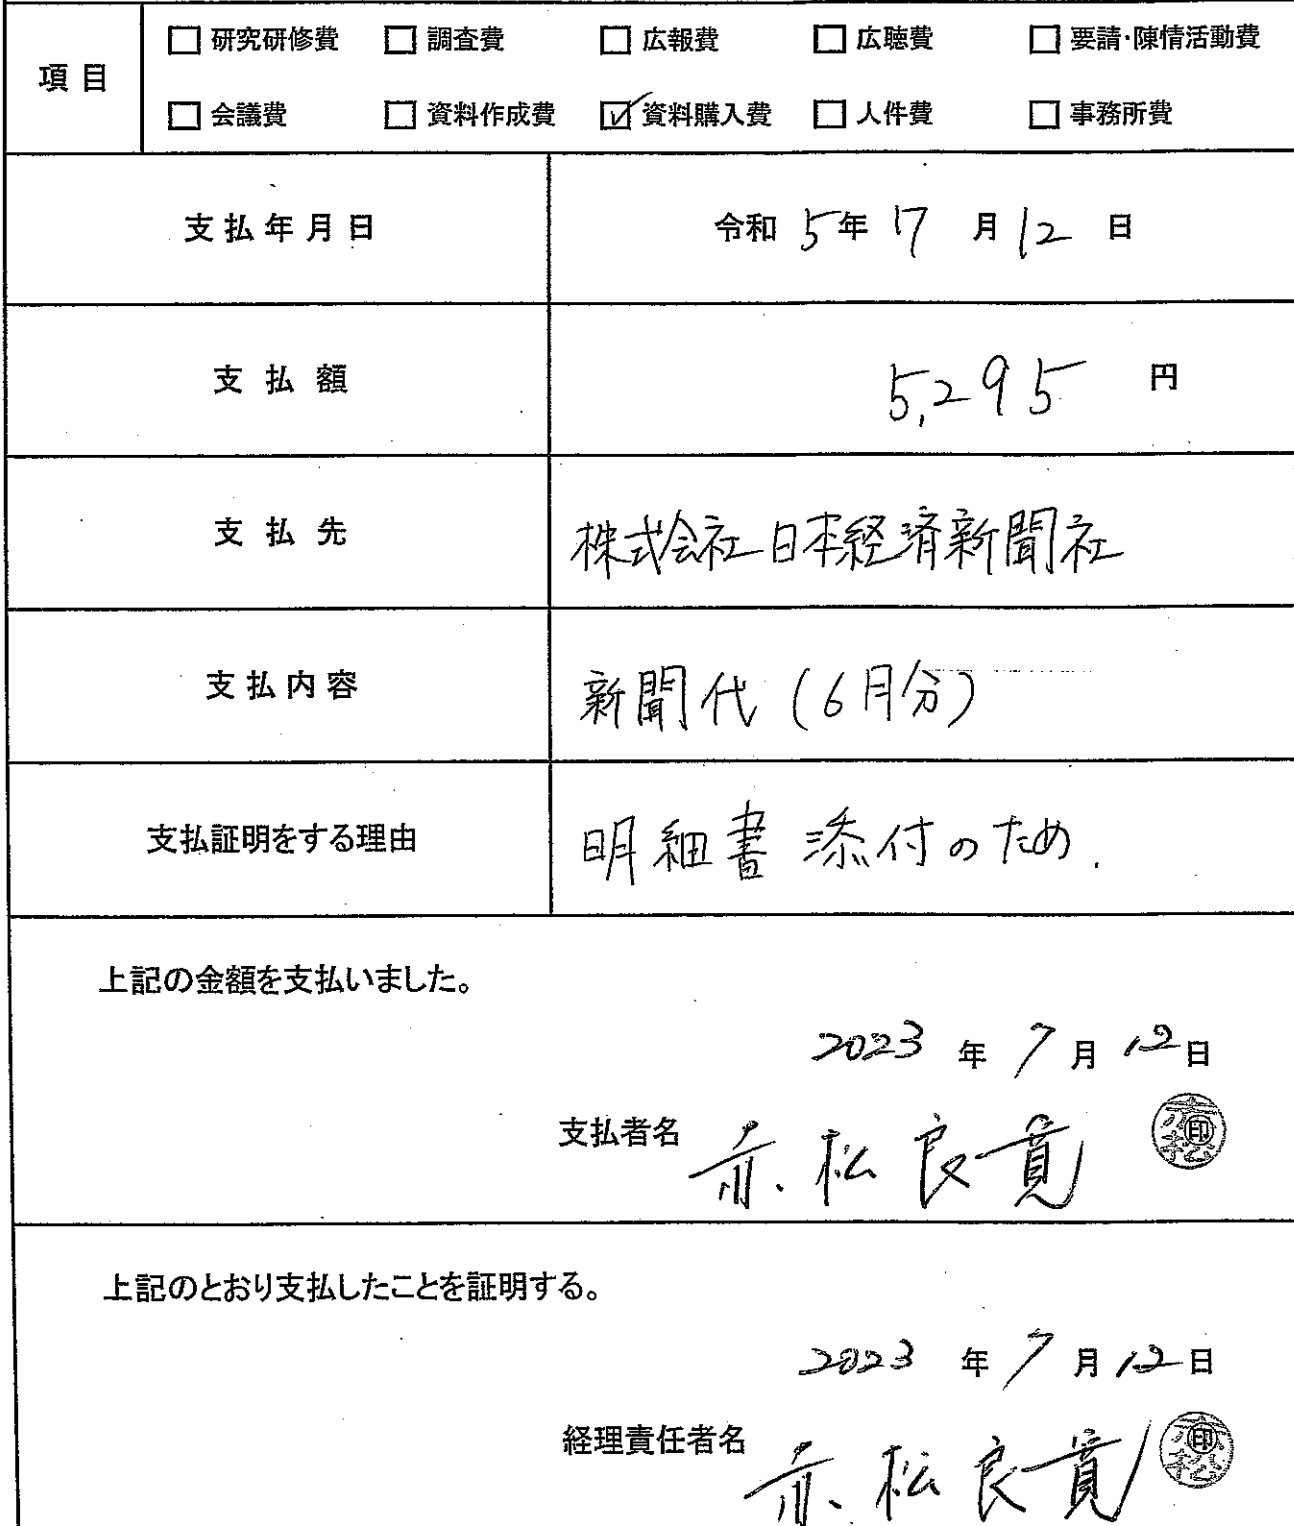 項目
☐ 研究研修費 ☐ 調査費 ☐ 広報費 ☐ 広聴費 ☐ 要請・陳情活動費
☐ 会議費 ☐ 資料作成費 ☑ 資料購入費 ☐ 人件費 ☐ 事務所費
支払年月日 令和 5年 7 月 12 日
支払額 5,295 円
支払先 株式会社日本経済新聞社
支払内容 新聞代(6月分)
支払証明をする理由 明細書添付のため.
上記の金額を支払いました。
2023 年 7 月 12 日
支払者名 赤松良寛 赤松 印
上記のとおり支払したことを証明する。
2023 年 7 月 12 日
経理責任者名 赤松良寛 赤松 印